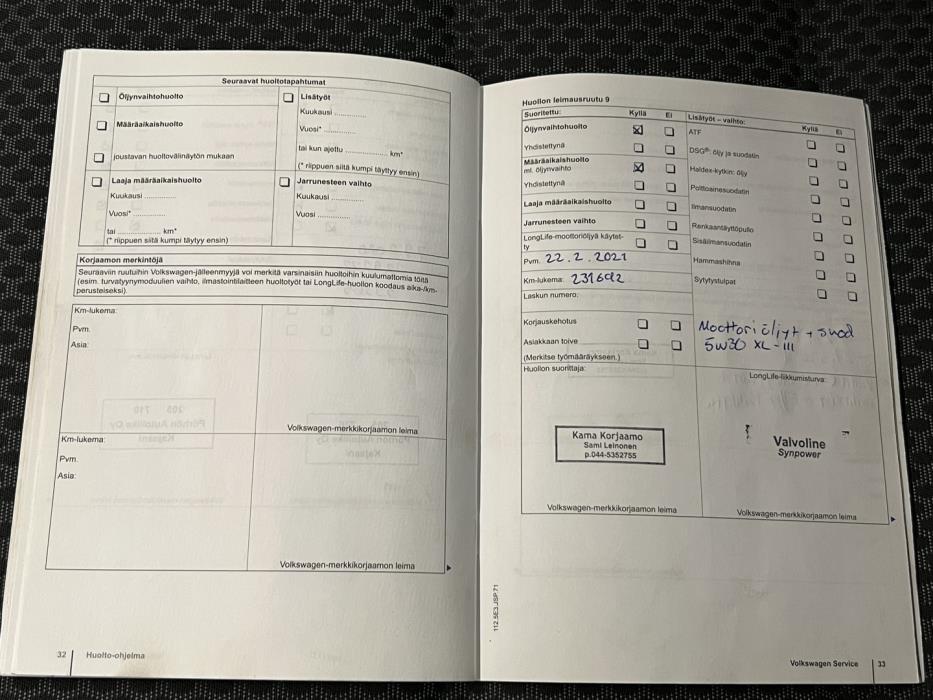 Seuraavat huoltotapahtumat
Öljynvaihtohuolto
Määräaikaishuolto
joustavan huoltovälinäytön mukaan
Lisätyöt
Kuukausi ..............
Vuosi* ..............
tai kun ajettu .............. km*
(* riippuen siitä kumpi täyttyy ensin)
Laaja määräaikaishuolto
Kuukausi ..............
Vuosi* ..............
tai .............. km*
(* riippuen siitä kumpi täytyy ensin)
Jarrunesteen vaihto
Kuukausi ..............
Vuosi ..............
Korjaamon merkintöjä
Seuraaviin ruutuihin Volkswagen-jälleenmyyjä voi merkitä varsinaisiin huoltoihin kuulumattomia töitä
(esim. turvatyynymoduulien vaihto, ilmastointilaitteen huoltotyöt tai LongLife-huollon koodaus aika-/km-
perusteiseksi).
Km-lukema:
Pvm.
Asia:
Volkswagen-merkkikorjaamon leima
Km-lukema:
Pvm.
Asia:
Volkswagen-merkkikorjaamon leima
32 Huolto-ohjelma
Huollon leimausruutu 9
Suoritettu: Kyllä Ei
Öljynvaihtohuolto
Yhdistettynä
Määräaikaishuolto
ml. öljynvaihto
Yhdistettynä
Laaja määräaikaishuolto
Jarrunesteen vaihto
LongLife-moottoriöljyä käytet-
ty
Pvm. 22.2.2021
Km-lukema: 231692
Laskun numero:
Lisätyöt – vaihto: Kyllä Ei
ATF
DSG®: öljy ja suodatin
Haldex-kytkin: öljy
Polttoainesuodatin
Ilmansuodatin
Renkaantäyttöpullo
Sisäilmansuodatin
Hammashihna
Sytytystulpat
Korjauskehotus
Asiakkaan toive
(Merkitse työmääräykseen.)
Moottori öljyt + suod
5W30 XL-III
Huollon suorittaja:
Kama Korjaamo
Sami Leinonen
p.044-5352755
Volkswagen-merkkikorjaamon leima
LongLife-liikkumisturva:
Valvoline
Synpower
Volkswagen-merkkikorjaamon leima
112.5E3.JSP.71
Volkswagen Service 33